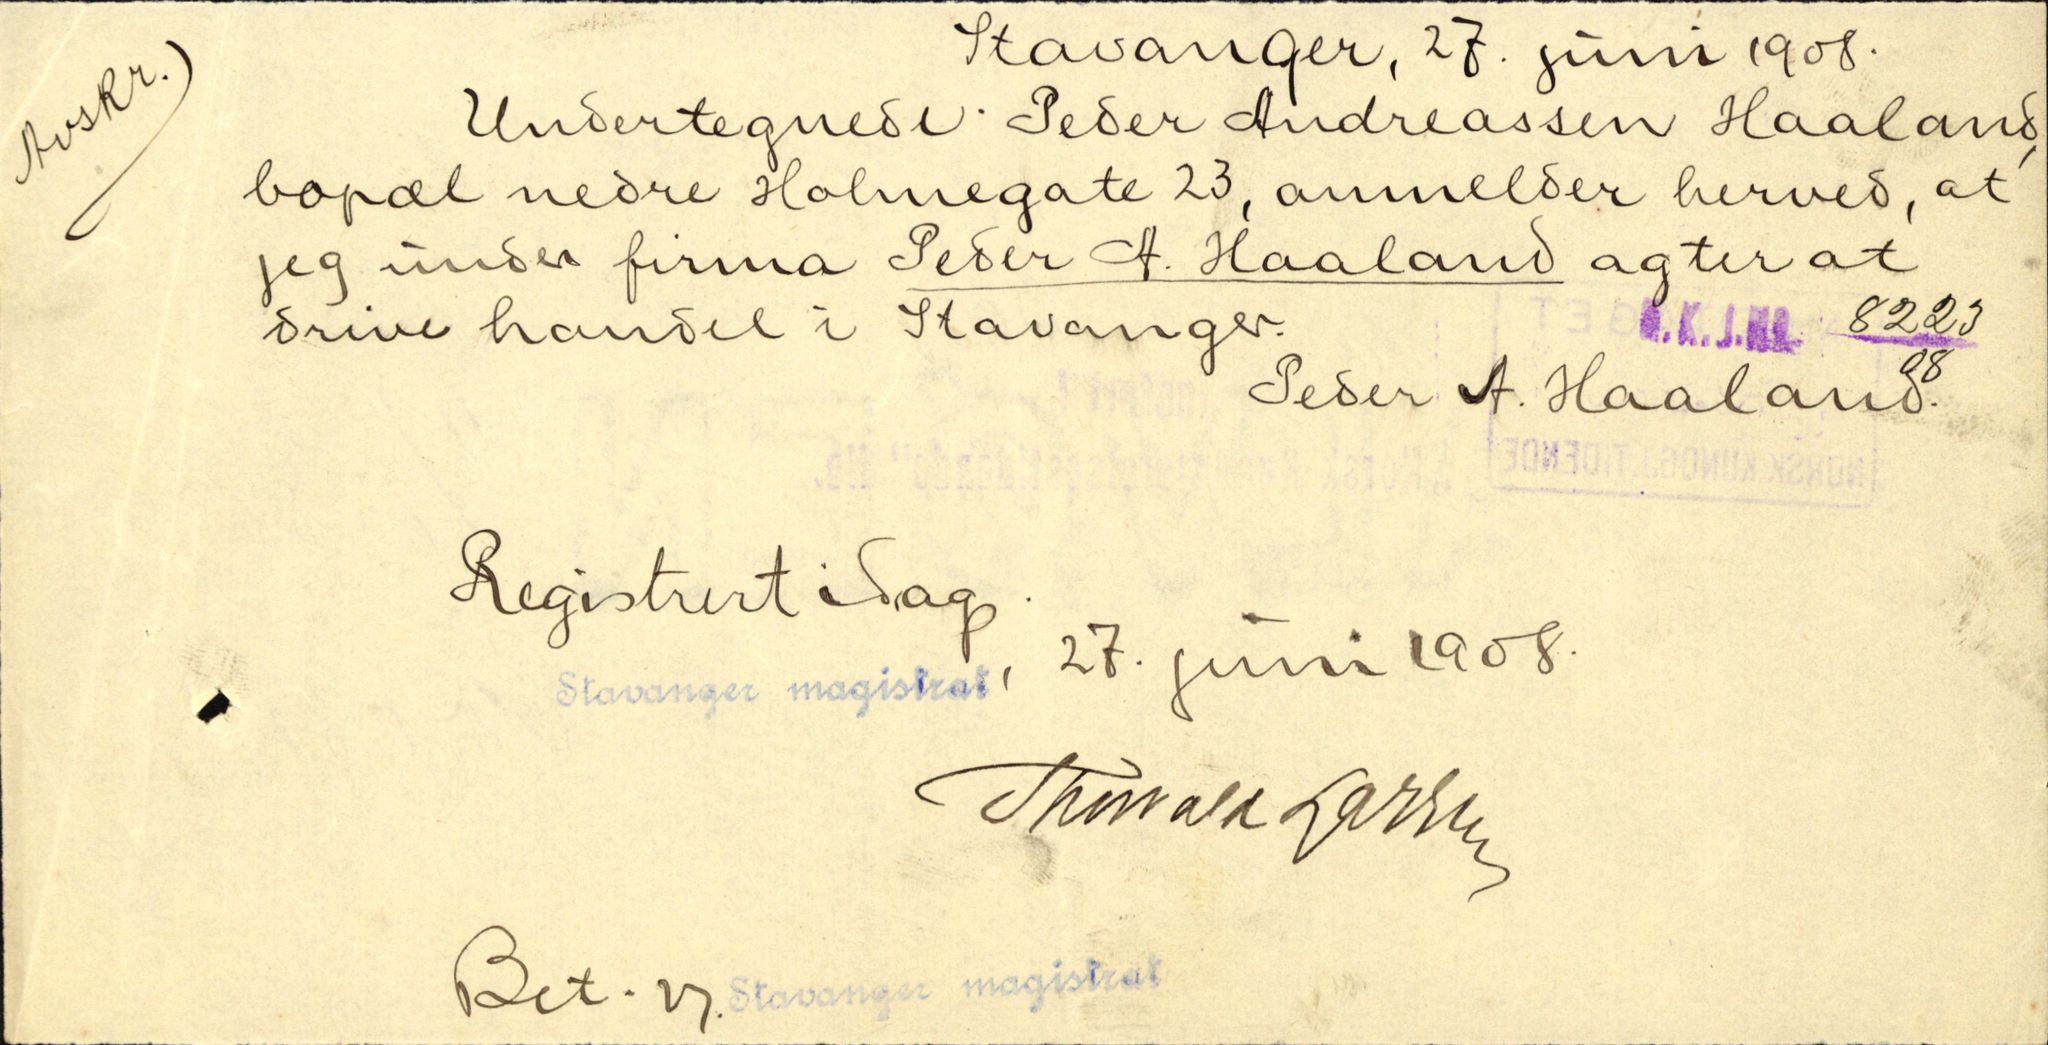 Avskr.)
Stavanger, 27. juni 1908.
Undertegnede Peder Andreassen Haaland,
bopæl nedre Holmegate 23, anmelder herved, at
jeg under firma Peder A. Haaland agter at
drive handel i Stavanger.
8223
08
Peder A. Haaland.
NORSK KUNDGJ. TIDENDE
Registrert idag.
Stavanger magistrat, 27. juni 1908.
Thorvald Larsen
Bet. Stavanger magistrat